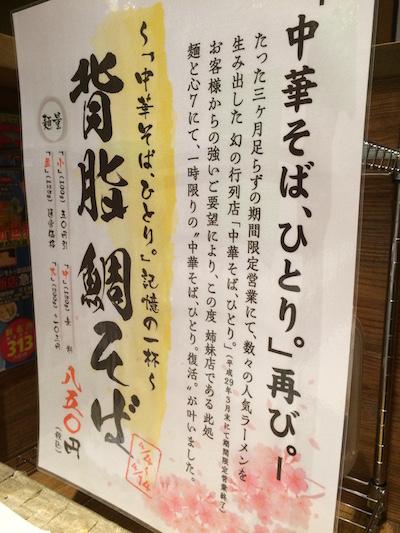 「中華そば、ひとり。」再び。ー
たった三ヶ月足らずの期間限定営業にて、数々の人気ラーメンを
生み出した 幻の行列店「中華そば、ひとり。」(平成29年3月末にて期間限定営業終了)
お客様からの強いご要望により、この度 姉妹店である 此処
麺と心7にて、一時限りの〝中華そば、ひとり。復活。〟が叶いました。
〜「中華そば、ひとり。」記憶の一杯〜
背脂 鯛そば
4/12〜4/14
麺量
「小」(100g) 五〇円引
「並」(150g) 通常価格
八五〇円
(税込)
313